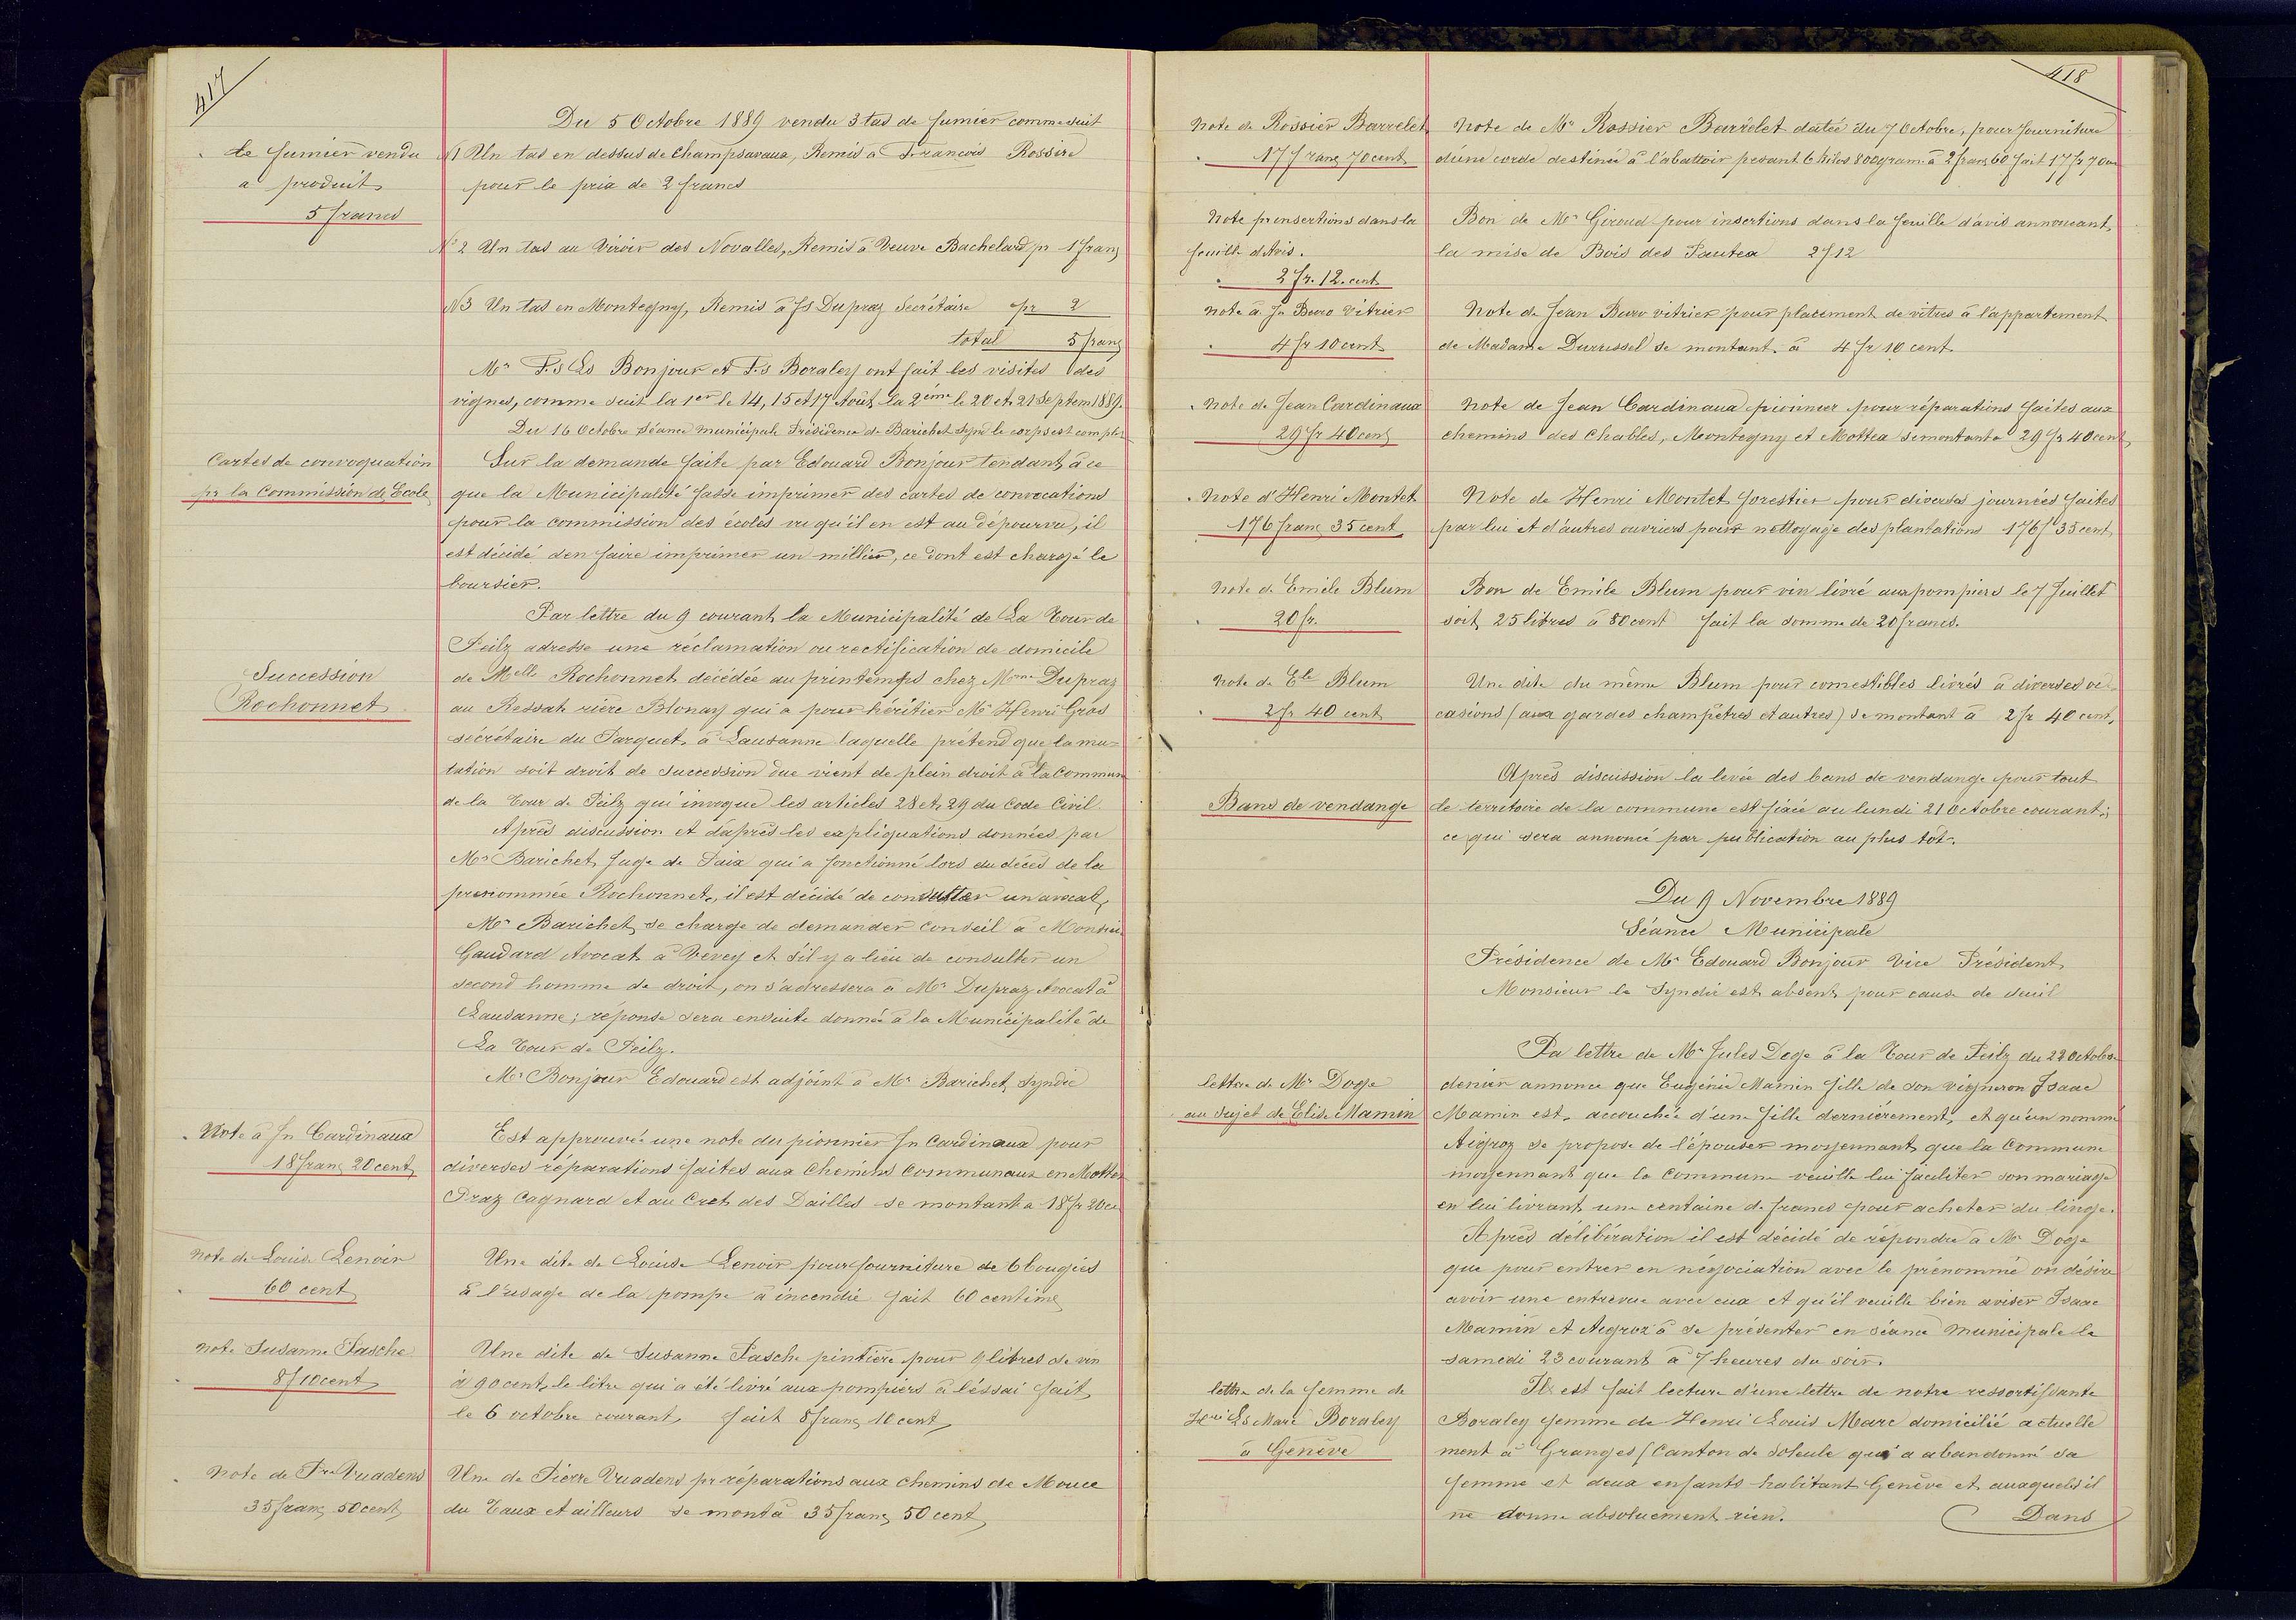 417
Du 5 Octobre 1889 vendu 3 tas de fumier comme suit
Le fumier vendu
a produit
5 francs
N1 Un tas en dessus de Champsavaux, Remis à François Rossire
pour le prix de 2 francs
N° 2 Un tas au Viroir des Novalles, Remis à Veuve Bachelard pr 1 franc
N3 Un tas en Montegny, Remis à fs Dupraz Secrétaire pr 2
total 5 franc
Mr F.s Ls Bonjour et F.s Boraley ont fait les visites des
vignes, comme suit la 1er le 14, 15 et 17 Août, la 2ème le 20 et 21 Septem 1889.
Du 16 Octobre Séance municipale Présidence de Barichet Synd le corps est complet
Cartes de convoquation
pr la Commission de Ecole
Sur la demande faite par Edouard Bonjour tendant à ce
que la Municipalité fasse imprimer des cartes de convocations
pour la commission des écoles vu qu'il en est au dépourvu, il
est décidé d'en faire imprimer un millier, ce dont est chargé le
boursier.
Par lettre du 9 courant la Municipalité de La Tour de
Peilz adresse une réclamation ou rectification de domicile
Succession
Rochonnet
de Melle Rochonnet décédée au printemps chez Mme Dupraz
au Ressat rière Blonay qui a pour héritier Mr Henri Gros
sécrétaire du Parquet à Lausanne laquelle prétend que la mu=
tation soit droit de succession due vient de plein droit à la Commune
de la Tour de Peilz qui invoque les articles 28 et 29 du Code Civil.
Après discussion et d'après les expliquations données par
Mr Barichet Juge de Paix qui a fonctionné lors du décès de la
prénommée Rochonnet, il est décidé de consulter un avocat,
Mr Barichet se charge de demander conseil à Monsieu
Gaudard Avocat à Vevey et s'il y a lieu de consulter un
second homme de droit, on s'adressera à Mr Dupraz Avocat à
Lausanne; réponse sera ensuite donnée à la Municipalité de
La Tour de Peilz.
Mr Bonjour Edouard est adjoint à Mr Barichet Syndic
Note à Jn Cardinaux
18 franc 20 cent
Est approuvée une note du pionnier Jn Cardinaux pour
diverses réparations faites aux Chemins Communaux en Mottex
Praz Cagnard et au Cret des Dailles se montant a 18 fr 20 ce
Note de Louise Lenoir
60 cent
Une dite de Louise Lenoir pour fourniture de 6 bougies
à l'usage de la pompe à incendie fait 60 centime
note Susanne Pasche
8 f 10 cent
Une dite de Susanne Pasche pintière pour 9 litres de vin
à 90 cent le litre qui a été livré aux pompiers à l'éssai fait
le 6 octobre courant fait 8 franc 10 cent
Note de Pre Vuadens
35 franc 50 cent
Une de Pierre Vuadens pr réparations aux chemins de Mouce
du Taux et ailleurs se monta 35 franc 50 cent
418
Note de Rossier Barrelet
17 franc 70 cent
Note de Mr Rossier Barrelet datée du 7 Octobre, pour fourniture
d'une corde destinée à l'abattoir pesant 6 kilos 800 gram à 2 franc 60 fait 17 fr 70 ce
Note pr insertions dans la
feuille d'Avis.
2 fr. 12. cent
Bon de Mr Giroud pour insertions dans la feuille d'avis annoncant
la mise de Bois des Pautex 2 f 12
note à Jn Buro Vitrier
4 fr 10 cent
Note de Jean Buro vitrier pour placement de vitres à l'appartement
de Madame Durussel se montant à 4 fr 10 cent
Note de Jean Cardinaux
29 fr 40 cent
Note de Jean Cardinaux pionnier pour réparations faites aux
chemins des Chables, Montegny et Mottex se montant a 29 fr 40 cent
Note d'Henri Montet
176 franc 35 cent
Note de Henri Montet forestier pour diverses journées faites
par lui et d'autres ouvriers pour nettoyage des plantations 176 f 35 cent
Note de Emile Blum
20 fr.
Bon de Emile Blum pour vin livré aux pompiers le 7 Juillet
soit 25 litres à 80 cent fait la somme de 20 francs.
Note de Ele Blum
2 fr 40 cent
Une dite du même Blum pour comestibles livrés à diverses oc=
casions (aux gardes champêtres et autres) se montant à 2 fr 40 cent,
Après discussion la levée des bans de vendange pour tout
Bans de vendange
le territoire de la commune est fixée au lundi 21 Octobre courant;
ce qui sera annoncé par publication au plus tôt.
Du 9 Novembre 1889
Séance Municipale
Présidence de Mr Edouard Bonjour Vice Président
Monsieur le Syndic est absent pour cause de deuil
Pa lettre de Mr Jules Doge à la Tour de Peilz du 22 Octobre
lettre de Mr Doge
au sujet de Elise Mamin
dernier annonce que Eugénie Mamin fille de son vigneron Isaac
Mamin est accouchée d'une fille dernièrement, et qu'un nommé
Aigroz se propose de l'épouser moyennant que la Commune
moyennant que la Commune veuille lui faciliter son mariage
en lui livrant une centaine de francs pour acheter du linge.
Après délibération il est décidé de répondre à Mr Doge
que pour entrer en négociation avec le prénommé on désire
avoir une entrevue avec eux et qu'il veuille bien aviser Isaac
Mamin et Aigroz à se présenter en séance municipale le
samedi 23 courant à 7 heures du soir.
lettre de la femme de
Hri Ls Marc Boraley
à Genève
Il est fait lecture d'une lettre de notre ressortissante
Boraley femme de Henri Louis Marc domicilié actuelle
ment à Granges (Canton de Soleule qui a abandonné sa
femme et deux enfants habitant Genève et auxquels il
ne donne absoluement rien.
Dans